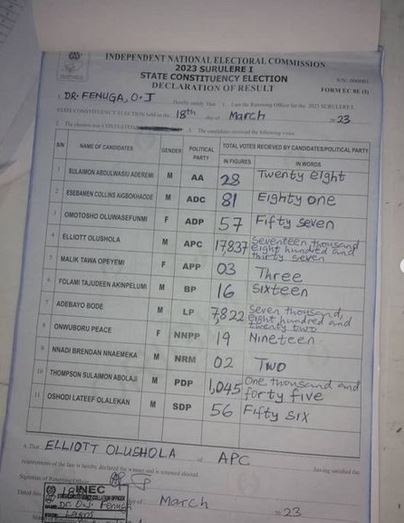 INDEPENDENT NATIONAL ELECTORAL COMMISSION
2023 SURULERE I
STATE CONSTITUENCY ELECTION
DECLARATION OF RESULT
S/N: 000001
FORM EC 8E (I)
I DR. FENUGA, O. J Hereby certify That 1. I am the Returning Officer for the 2023 SURULERE I
STATE CONSTITUENCY ELECTION held on the 18th day of March 20 23
2. The election was CONTESTED 3. The candidates received the following votes
S/N NAME OF CANDIDATES GENDER POLITICAL PARTY TOTAL VOTES RECIEVED BY CANDIDATES/POLITICAL PARTY
IN FIGURES IN WORDS
1 SULAIMON ABDULWASIU ADEREMI M AA 28 Twenty eight
2 ESEBAMEN COLLINS AIGBOKHAODE M ADC 81 Eighty one
3 OMOTOSHO OLUWASEFUNMI F ADP 57 Fifty seven
4 ELLIOTT OLUSHOLA M APC 17837 Seventeen thousand
eight hundred and
thirty seven
5 MALIK TAWA OPEYEMI F APP 03 Three
6 FOLAMI TAJUDEEN AKINPELUMI M BP 16 Sixteen
7 ADEBAYO BODE M LP 7,822 Seven thousand,
eight hundred and
twenty two
8 ONWUBORU PEACE F NNPP 19 Nineteen
9 NNADI BRENDAN NNAEMEKA M NRM 02 Two
10 THOMPSON SULAIMON ABOLAJI M PDP 1,045 One thousand and
forty five
11 OSHODI LATEEF OLALEKAN M SDP 56 Fifty six
4. That ELLIOTT OLUSHOLA of APC Having satisfied the
requirements of the law is hereby declared the winner and is returned elected.
Signature of Returning
Dated this 18 day of March 20 23
INEC
Dr. O.J. Fenuga
Lagos